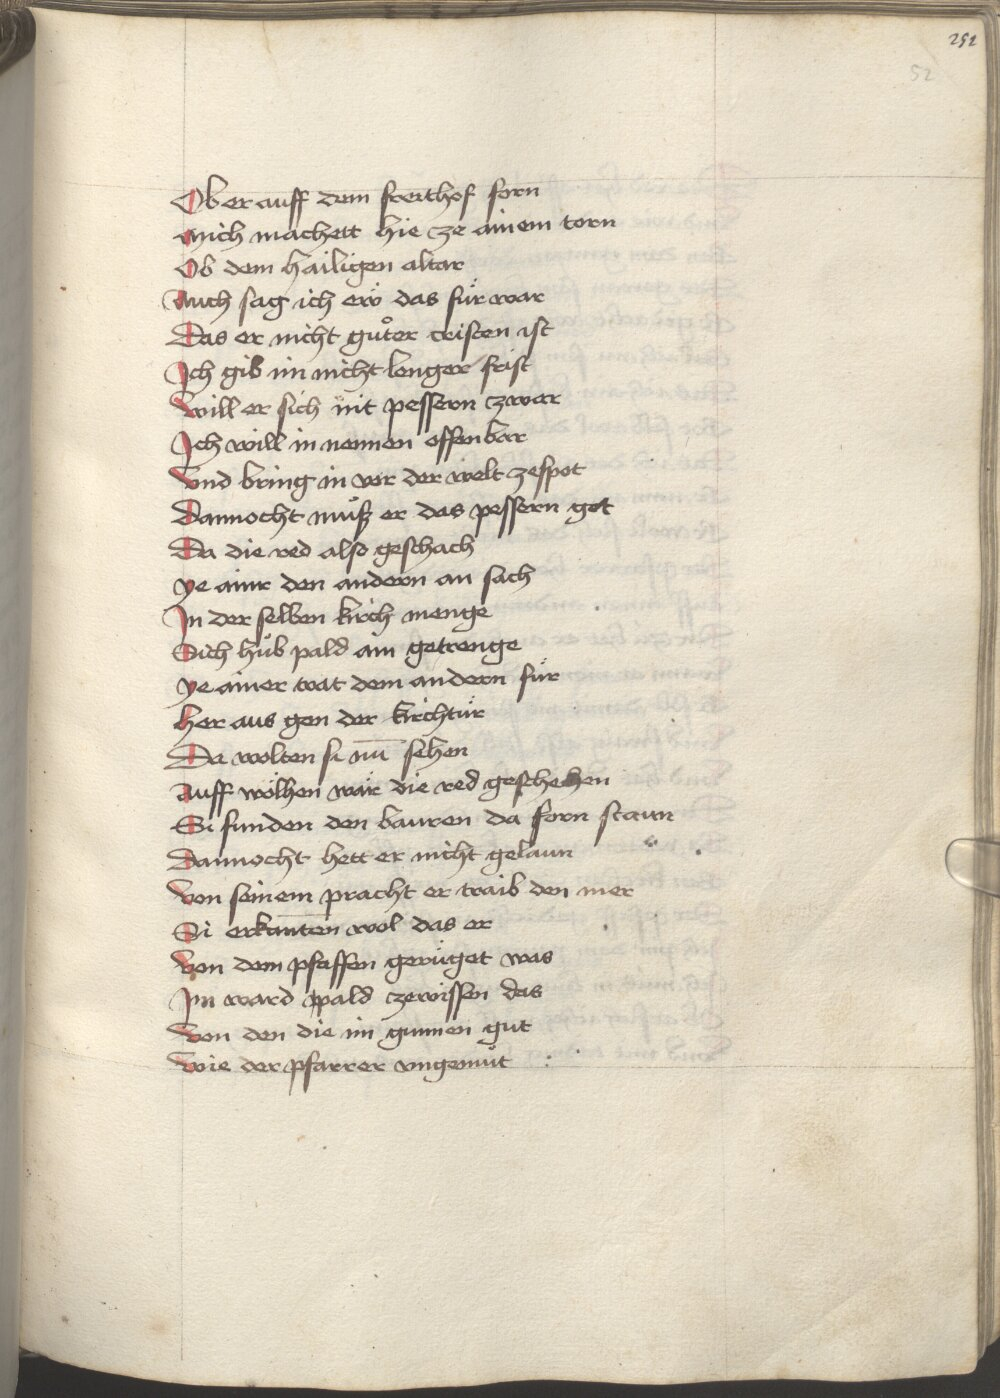 252
52
Ob er auff dem freithof forn
Mich machett hie cze ainem torn
Ob dem hailigen altar
Auch sag ich ew̎ das fu̎r war
Das er nicht gůter cristen ist
Ich gib im nicht lenger frist
Will er sich nit pessern zwar
Ich will in nennen offenbar
Vnd bring in vor der welt ze spot
Dannocht mu̎ß er das pessern got
Da die red also geschach
Ye ainr den andern an sach
In der selben kirch menge
Sich hu̎b pald ain getrenge
Ye ainer trat dem andern fu̎r
Her aus gen der kirchtu̎r
Da wolten si nu̅ sehen
Auff wo̎lhen wa̎r die red geschehen
Si funden den bauren da forn staun
Dannocht hett er nicht gelaun
Von seinem pracht er traib den mer
Si erkanten wol das er
Von dem pfaffen geru̎get was
Im ward pald ze wissen das
Von den die im gunnen gut
Wie der pfarrer vngemu̎t